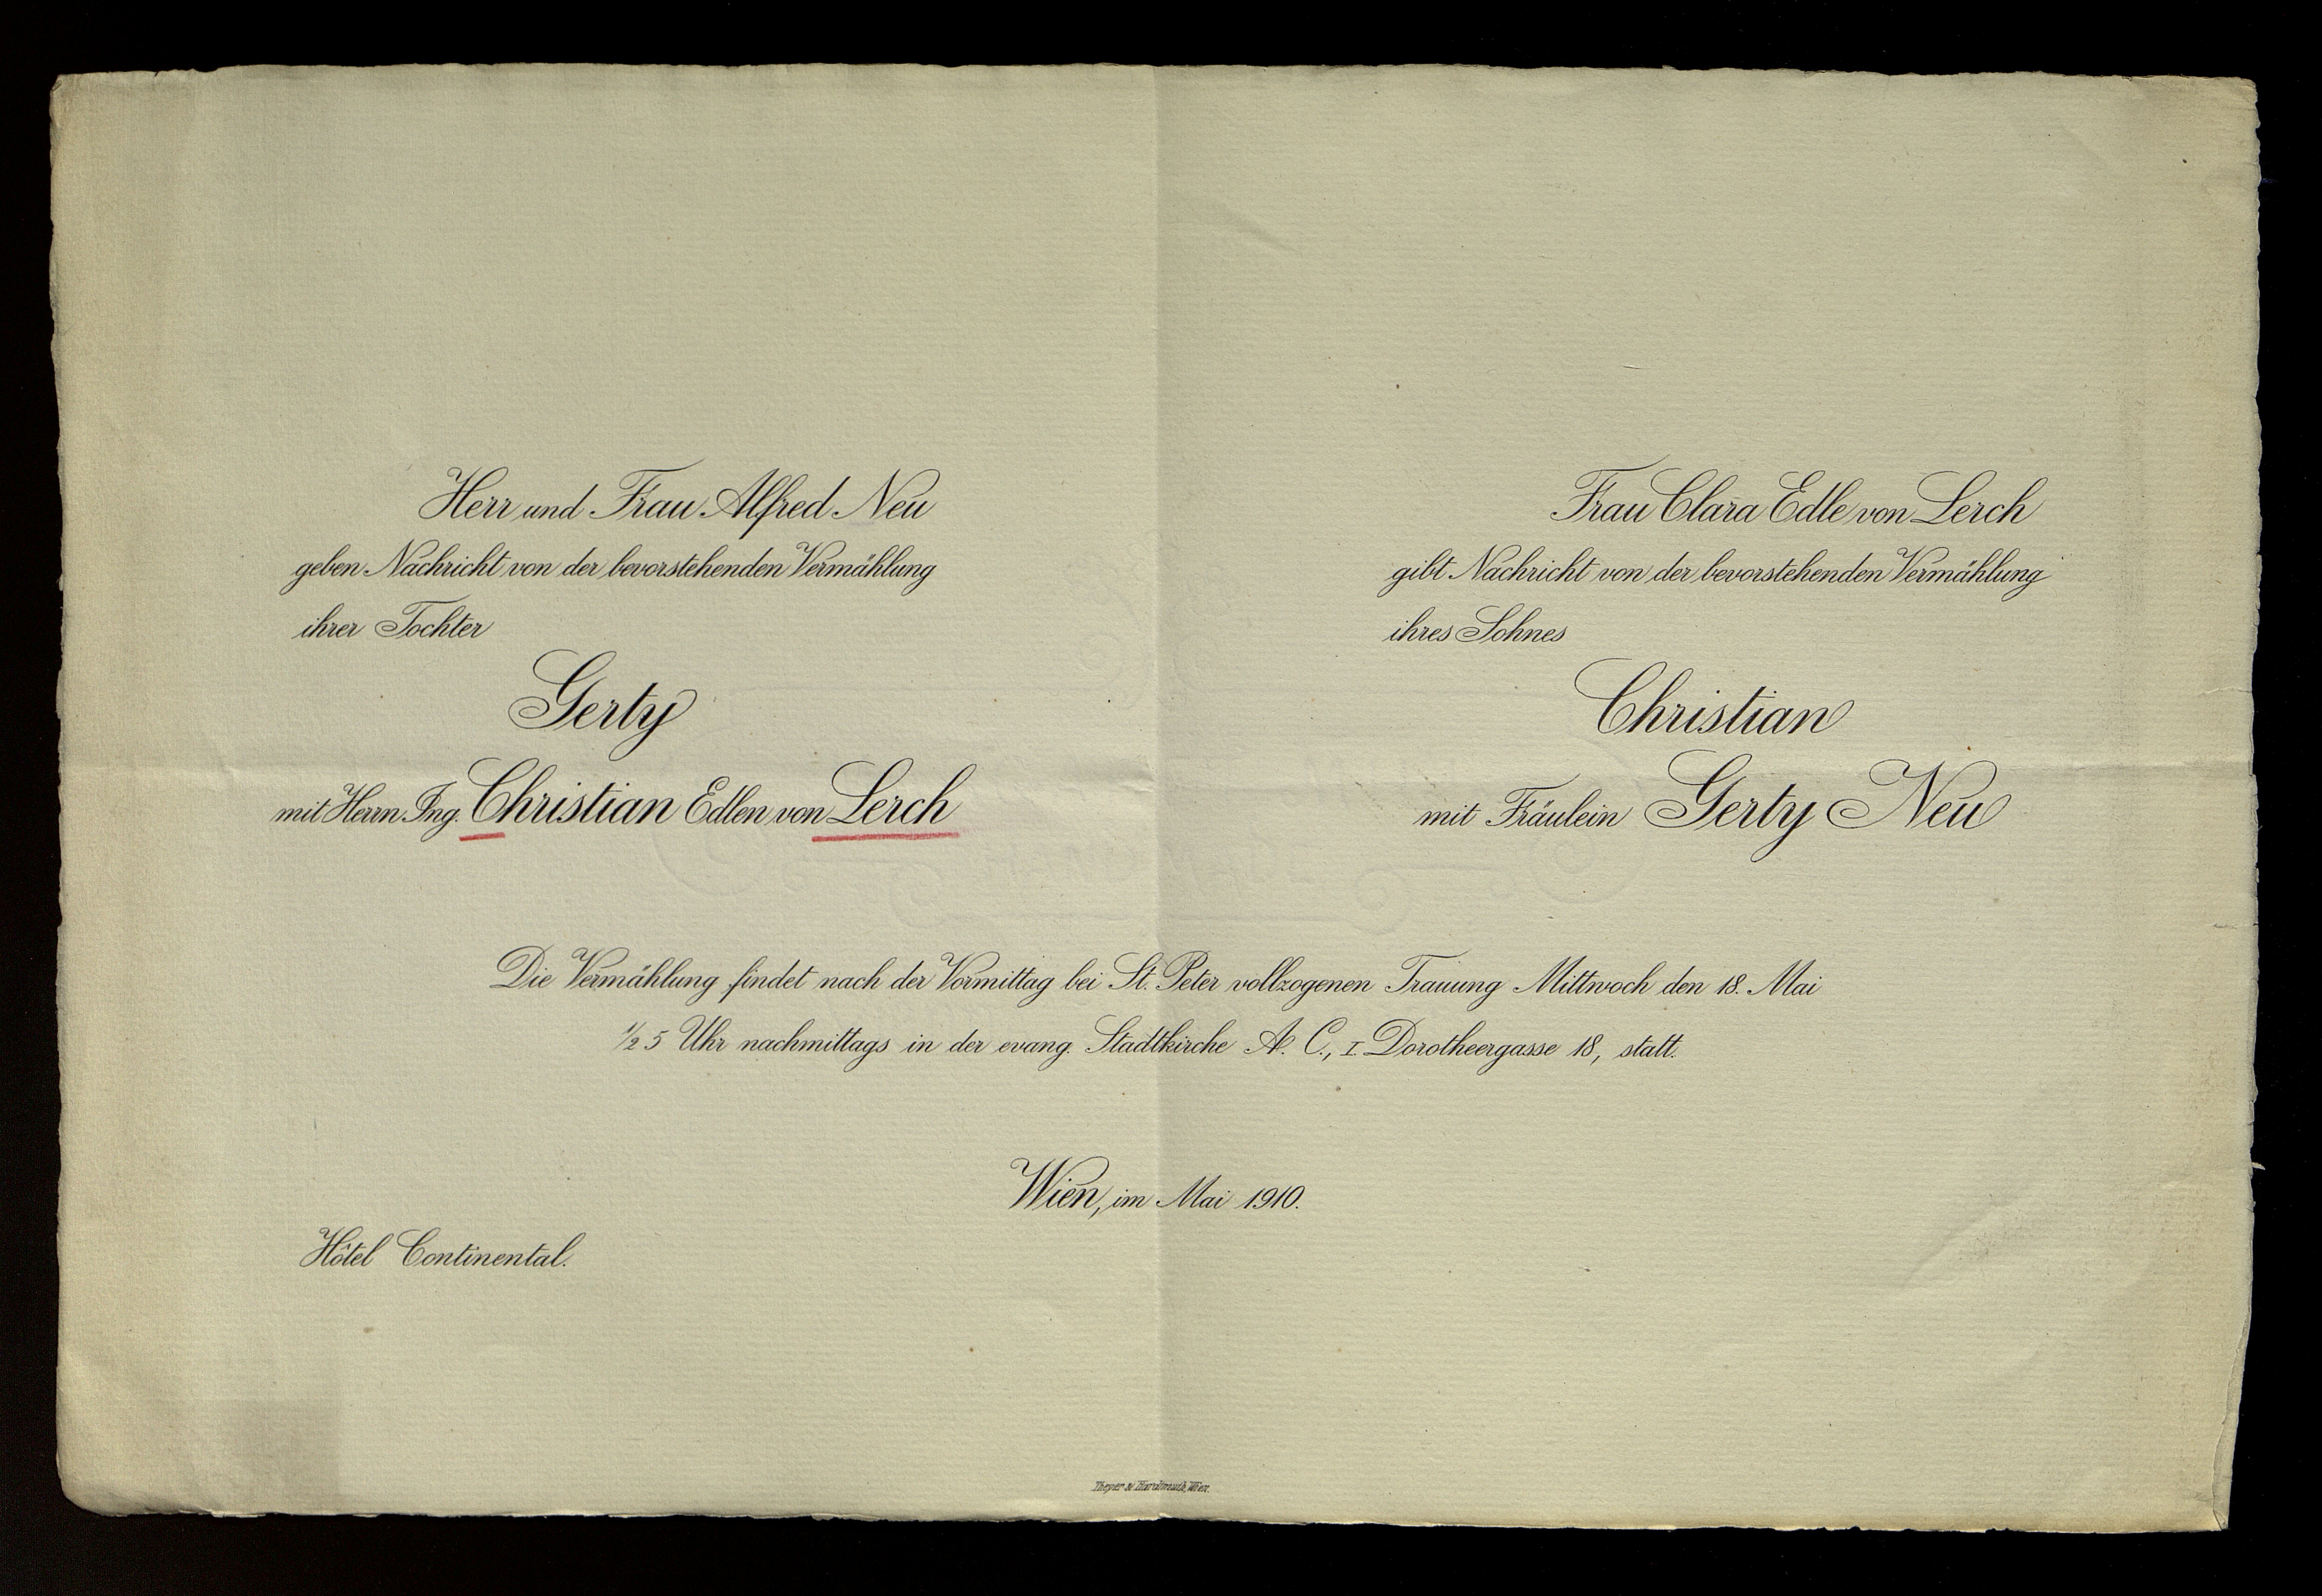 Herr und Frau Alfred Neu
geben Nachricht von der bevorstehenden Vermählung
ihrer Tochter
Gerty
mit Herrn Ing. Christian Edlen von Lerch
Frau Clara Edle von Lerch
gibt Nachricht von der bevorstehenden Vermählung
ihres Sohnes
Christian
mit Fräulein Gerty Neu
Die Vermählung findet nach der Vormittag bei St. Peter vollzogenen Trauung Mittwoch den 18. Mai
½ 5 Uhr nachmittags in der evang. Stadtkirche A. C., I. Dorotheergasse 18, statt.
Wien, im Mai 1910.
Hôtel Continental.
Theyer & Hardtmuth, Wien.